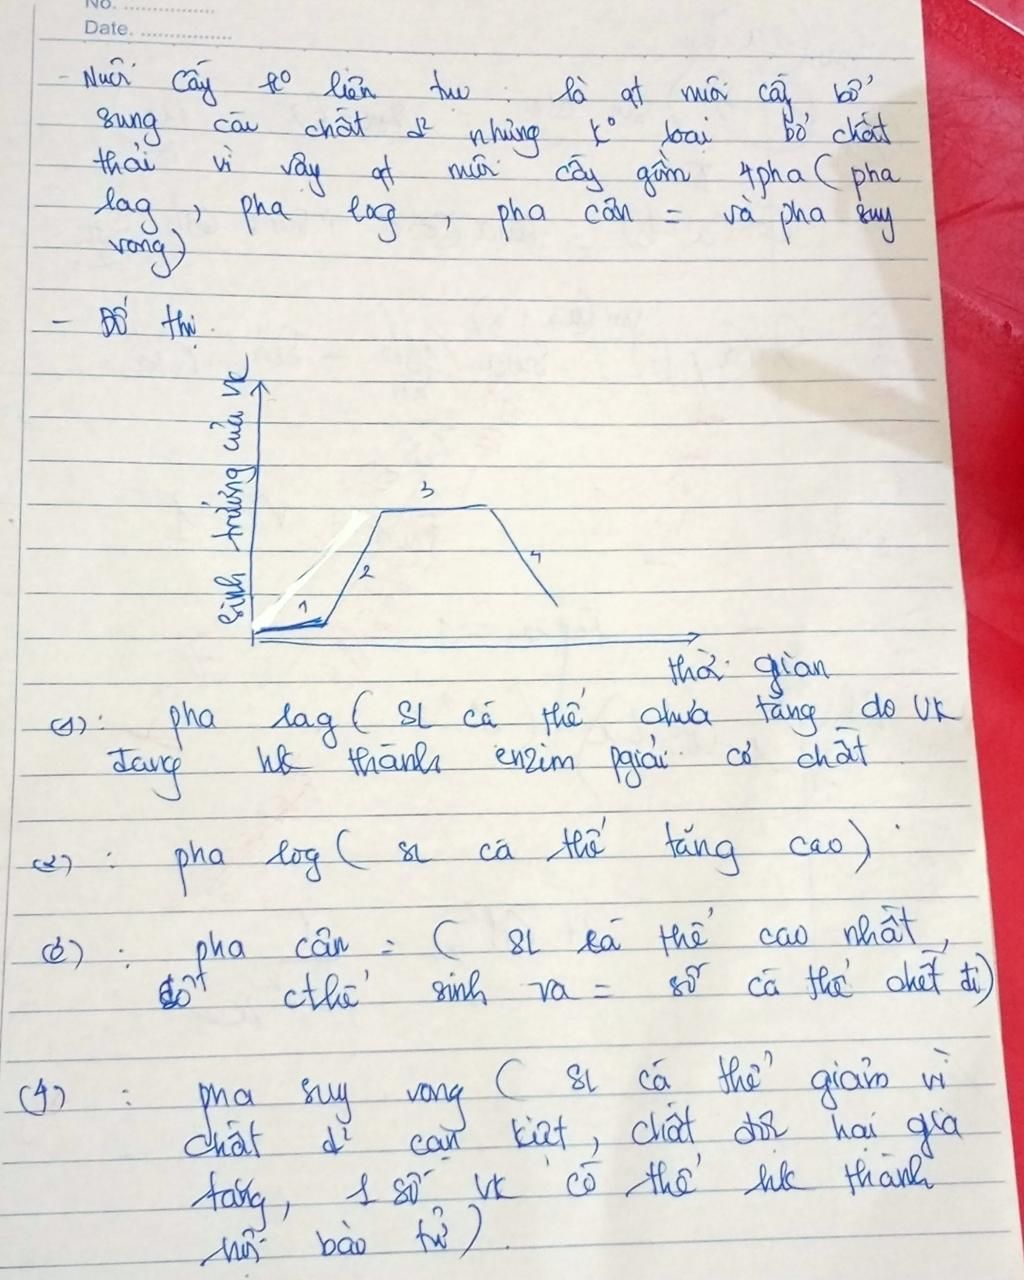 No. ................
Date. ................
- Nuôi cấy k° liên tục : là qt nuôi cấy bổ
sung các chất d² nhưng k° loại bỏ chất
thải vì vậy qt nuôi cấy gồm 4 pha ( pha
lag , pha log , pha cân = và pha suy
vong)
- Đồ thị.
Sinh trưởng của VK
3
2
4
1
thời gian
(1) : pha lag ( SL cá thể chưa tăng do VK
đang ht thành enzim pgiải cơ chất
(2) : pha log ( SL cá thể tăng cao) .
(3) : pha cân = ( SL cá thể cao nhất ,
số cthể sinh ra = số cá thể chết đi)
(4) : pha suy vong ( SL cá thể giảm vì
chất d² cạn kiệt , chất độc hại gia
tăng , 1 số VK có thể ht thành
nội bào tử ) .